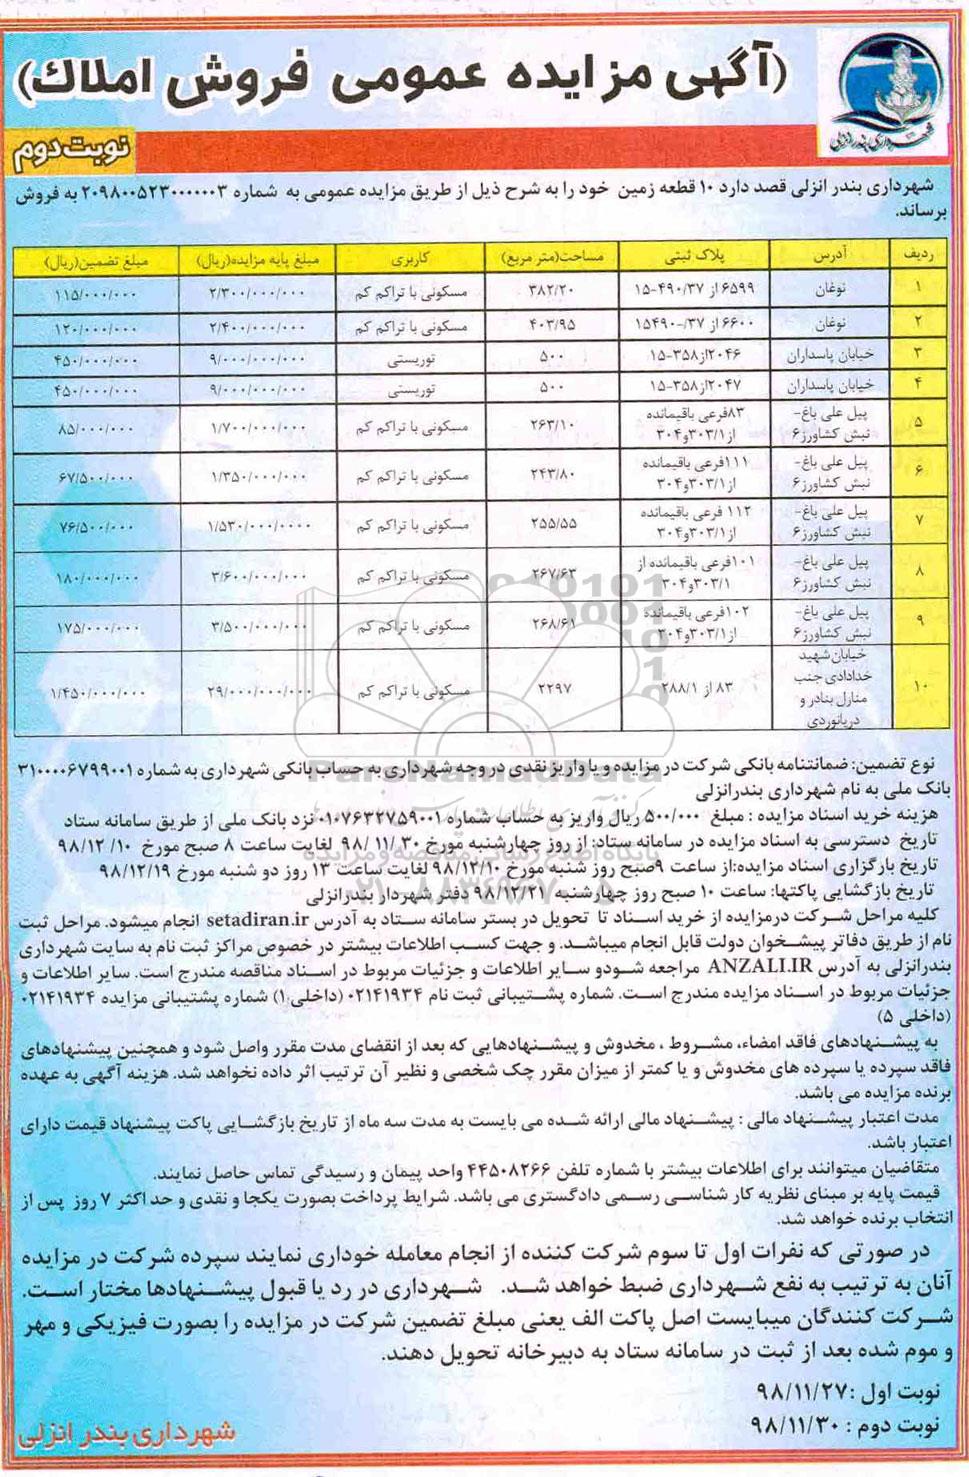 (آگهی مزایده عمومی فروش املاک)
شهرداری بندرانزلی
نوبت دوم
شهرداری بندر انزلی قصد دارد ۱۰ قطعه زمین خود را به شرح ذیل از طریق مزایده عمومی به شماره ۲۰۹۸۰۰۵۲۳۰۰۰۰۰۰۳ به فروش
برساند.
ردیف آدرس پلاک ثبتی مساحت(متر مربع) کاربری مبلغ پایه مزایده(ریال) مبلغ تضمین(ریال)
۱ نوغان ۶۵۹۹ از ۴۹۰/۳۷-۱۵ ۳۸۲/۲۰ مسکونی با تراکم کم ۲/۳۰۰/۰۰۰/۰۰۰ ۱۱۵/۰۰۰/۰۰۰
۲ نوغان ۶۶۰۰ از ۳۷/-۱۵۴۹۰ ۴۰۳/۹۵ مسکونی با تراکم کم ۲/۴۰۰/۰۰۰/۰۰۰ ۱۲۰/۰۰۰/۰۰۰
۳ خیابان پاسداران ۲۰۴۶از۳۵۸-۱۵ ۵۰۰ توریستی ۹/۰۰۰/۰۰۰/۰۰۰ ۴۵۰/۰۰۰/۰۰۰
۴ خیابان پاسداران ۲۰۴۷از۳۵۸-۱۵ ۵۰۰ توریستی ۹/۰۰۰/۰۰۰/۰۰۰ ۴۵۰/۰۰۰/۰۰۰
۵ پیل علی باغ- نبش کشاورز۶ ۸۳فرعی باقیمانده از۳۰۳/۱و۳۰۴ ۲۶۳/۱۰ مسکونی با تراکم کم ۱/۷۰۰/۰۰۰/۰۰۰ ۸۵/۰۰۰/۰۰۰
۶ پیل علی باغ- نبش کشاورز۶ ۱۱۱فرعی باقیمانده از۳۰۳/۱و۳۰۴ ۲۴۳/۸۰ مسکونی با تراکم کم ۱/۳۵۰/۰۰۰/۰۰۰ ۶۷/۵۰۰/۰۰۰
۷ پیل علی باغ- نبش کشاورز۶ ۱۱۲ فرعی باقیمانده از۳۰۳/۱و۳۰۴ ۲۵۵/۵۵ مسکونی با تراکم کم ۱/۵۳۰/۰۰۰/۰۰۰۰ ۷۶/۵۰۰/۰۰۰
۸ پیل علی باغ- نبش کشاورز۶ ۱۰۱فرعی باقیمانده از ۳۰۳/۱و۳۰۴ ۲۶۷/۶۳ مسکونی با تراکم کم ۳/۶۰۰/۰۰۰/۰۰۰ ۱۸۰/۰۰۰/۰۰۰
۹ پیل علی باغ- نبش کشاورز۶ ۱۰۲فرعی باقیمانده از۳۰۳/۱و۳۰۴ ۲۶۸/۶۱ مسکونی با تراکم کم ۳/۵۰۰/۰۰۰/۰۰۰ ۱۷۵/۰۰۰/۰۰۰
۱۰ خیابان شهید خدادادی جنب منازل بنادر و دریانوردی ۸۳ از ۲۸۸/۱ ۲۲۹۷ مسکونی با تراکم کم ۲۹/۰۰۰/۰۰۰/۰۰۰ ۱/۴۵۰/۰۰۰/۰۰۰
ParsNamadData
نوع تضمین: ضمانتنامه بانکی شرکت در مزایده و یا واریز نقدی در وجه شهرداری به حساب بانکی شهرداری به شماره ۳۱۰۰۰۰۶۷۹۹۰۰۱
بانک ملی به نام شهرداری بندرانزلی
هزینه خرید اسناد مزایده : مبلغ ۵۰۰/۰۰۰ ریال واریز به حساب شماره ۰۱۰۷۶۳۲۷۵۹۰۰۱ نزد بانک ملی از طریق سامانه ستاد
تاریخ دسترسی به اسناد مزایده در سامانه ستاد: از روز چهارشنبه مورخ ۳۰ /۱۱ /۹۸ لغایت ساعت ۸ صبح مورخ ۱۰ /۹۸/۱۲
تاریخ بارگزاری اسناد مزایده:از ساعت ۹صبح روز شنبه مورخ ۹۸/۱۲/۱۰ لغایت ساعت ۱۳ روز دو شنبه مورخ ۹۸/۱۲/۱۹
تاریخ بازگشایی پاکتها: ساعت ۱۰ صبح روز چهارشنبه ۹۸/۱۲/۲۱ دفتر شهردار بندرانزلی
کلیه مراحل شرکت درمزایده از خرید اسناد تا تحویل در بستر سامانه ستاد به آدرس setadiran.ir انجام میشود. مراحل ثبت
نام از طریق دفاتر پیشخوان دولت قابل انجام میباشد. و جهت کسب اطلاعات بیشتر در خصوص مراکز ثبت نام به سایت شهرداری
بندرانزلی به آدرس ANZALI.IR مراجعه شودو سایر اطلاعات و جزئیات مربوط در اسناد مناقصه مندرج است. سایر اطلاعات و
جزئیات مربوط در اسناد مزایده مندرج است. شماره پشتیبانی ثبت نام ۰۲۱۴۱۹۳۴ (داخلی ۱) شماره پشتیبانی مزایده ۰۲۱۴۱۹۳۴
(داخلی ۵)
به پیشنهادهای فاقد امضاء، مشروط ، مخدوش و پیشنهادهایی که بعد از انقضای مدت مقرر واصل شود و همچنین پیشنهادهای
فاقد سپرده یا سپرده های مخدوش و یا کمتر از میزان مقرر چک شخصی و نظیر آن ترتیب اثر داده نخواهد شد. هزینه آگهی به عهده
برنده مزایده می باشد.
مدت اعتبار پیشنهاد مالی : پیشنهاد مالی ارائه شده می بایست به مدت سه ماه از تاریخ بازگشایی پاکت پیشنهاد قیمت دارای
اعتبار باشد.
متقاضیان میتوانند برای اطلاعات بیشتر با شماره تلفن ۴۴۵۰۸۲۶۶ واحد پیمان و رسیدگی تماس حاصل نمایند.
قیمت پایه بر مبنای نظریه کار شناسی رسمی دادگستری می باشد. شرایط پرداخت بصورت یکجا و نقدی و حد اکثر ۷ روز پس از
انتخاب برنده خواهد شد.
در صورتی که نفرات اول تا سوم شرکت کننده از انجام معامله خوداری نمایند سپرده شرکت در مزایده
آنان به ترتیب به نفع شهرداری ضبط خواهد شد. شهرداری در رد یا قبول پیشنهادها مختار است.
شرکت کنندگان میبایست اصل پاکت الف یعنی مبلغ تضمین شرکت در مزایده را بصورت فیزیکی و مهر
و موم شده بعد از ثبت در سامانه ستاد به دبیرخانه تحویل دهند.
نوبت اول :۹۸/۱۱/۲۷
نوبت دوم : ۹۸/۱۱/۳۰
شهرداری بندر انزلی